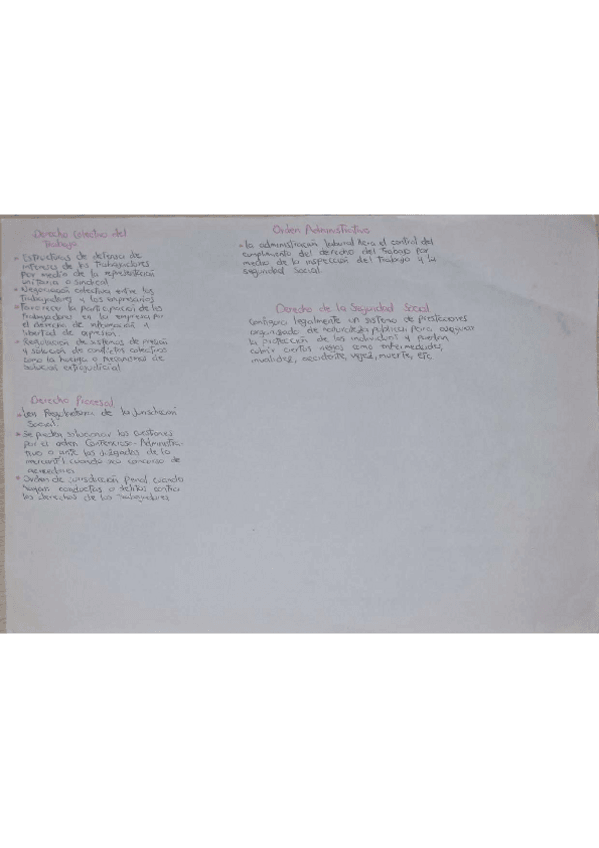 Derecho Colectivo del
Trabajo
Estructuras de defensa de
intereses de los trabajadores
por medio de la representación
unitaria o sindical
Negociación colectiva entre los
trabajadores y los empresarios
Favorecer la participación de los
trabajadores en la empresa por
el derecho de información y
libertad de expresión.
Regulación de sistemas de presión
y solución de conflictos colectivos
como la huelga o mecanismos de
solución extrajudicial
Derecho Procesal
Ley Reguladora de la Jurisdicción
Social.
Se pueden solucionar las cuestiones
por el orden Contencioso-Administra-
tivo o ante los Juzgados de lo
mercantil cuando sea concurso de
acreedores
Orden de jurisdicción penal cuando
hayan conductas o delitos contra
los derechos de los trabajadores
Orden Administrativo
La administración laboral hará el control del
cumplimiento del derecho del trabajo por
medio de la inspección del Trabajo y la
seguridad Social
Derecho de la Seguridad Social
Configura legalmente un sistema de prestaciones
de naturaleza pública para asegurar
la protección de los individuos y puedan
cubrir ciertos riesgos como enfermedades,
invalidez, accidente, vejez, muerte, etc